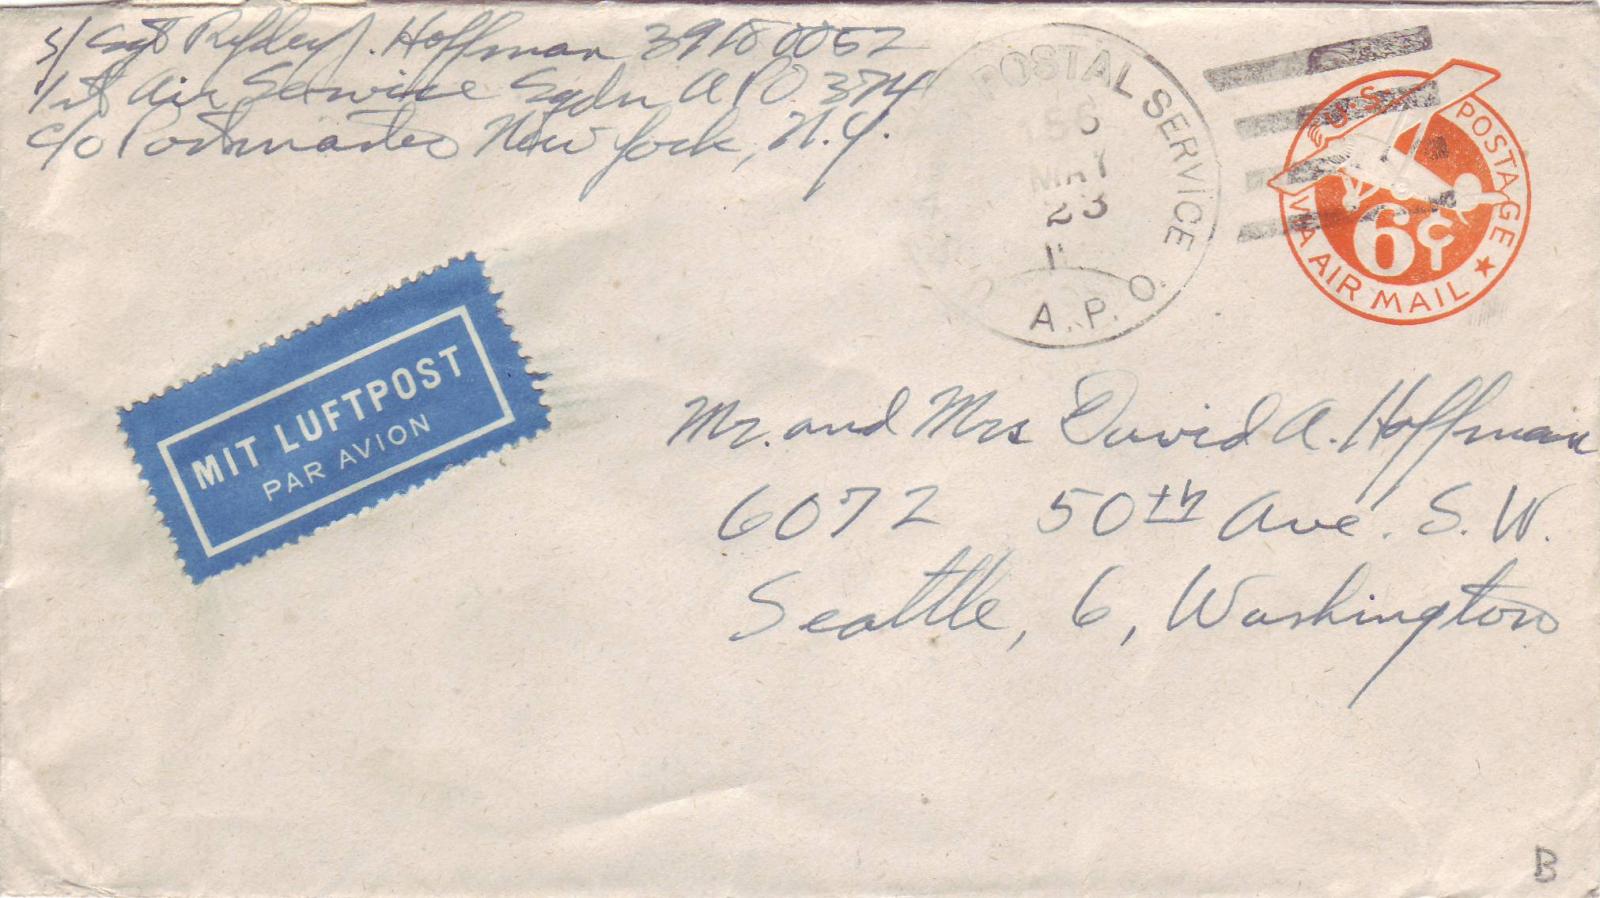 S/Sgt Ryfdey J. Hoffman 39180052
1st Air Service Sqdn APO 374
c/o Postmaster New York, N.Y.
POSTAL SERVICE
MAY
23
A.P.O.
U.S. POSTAGE
6¢
VIA AIR MAIL
MIT LUFTPOST
PAR AVION
Mr. and Mrs David A. Hoffman
6072 50th Ave. S.W.
Seattle, 6, Washington
B